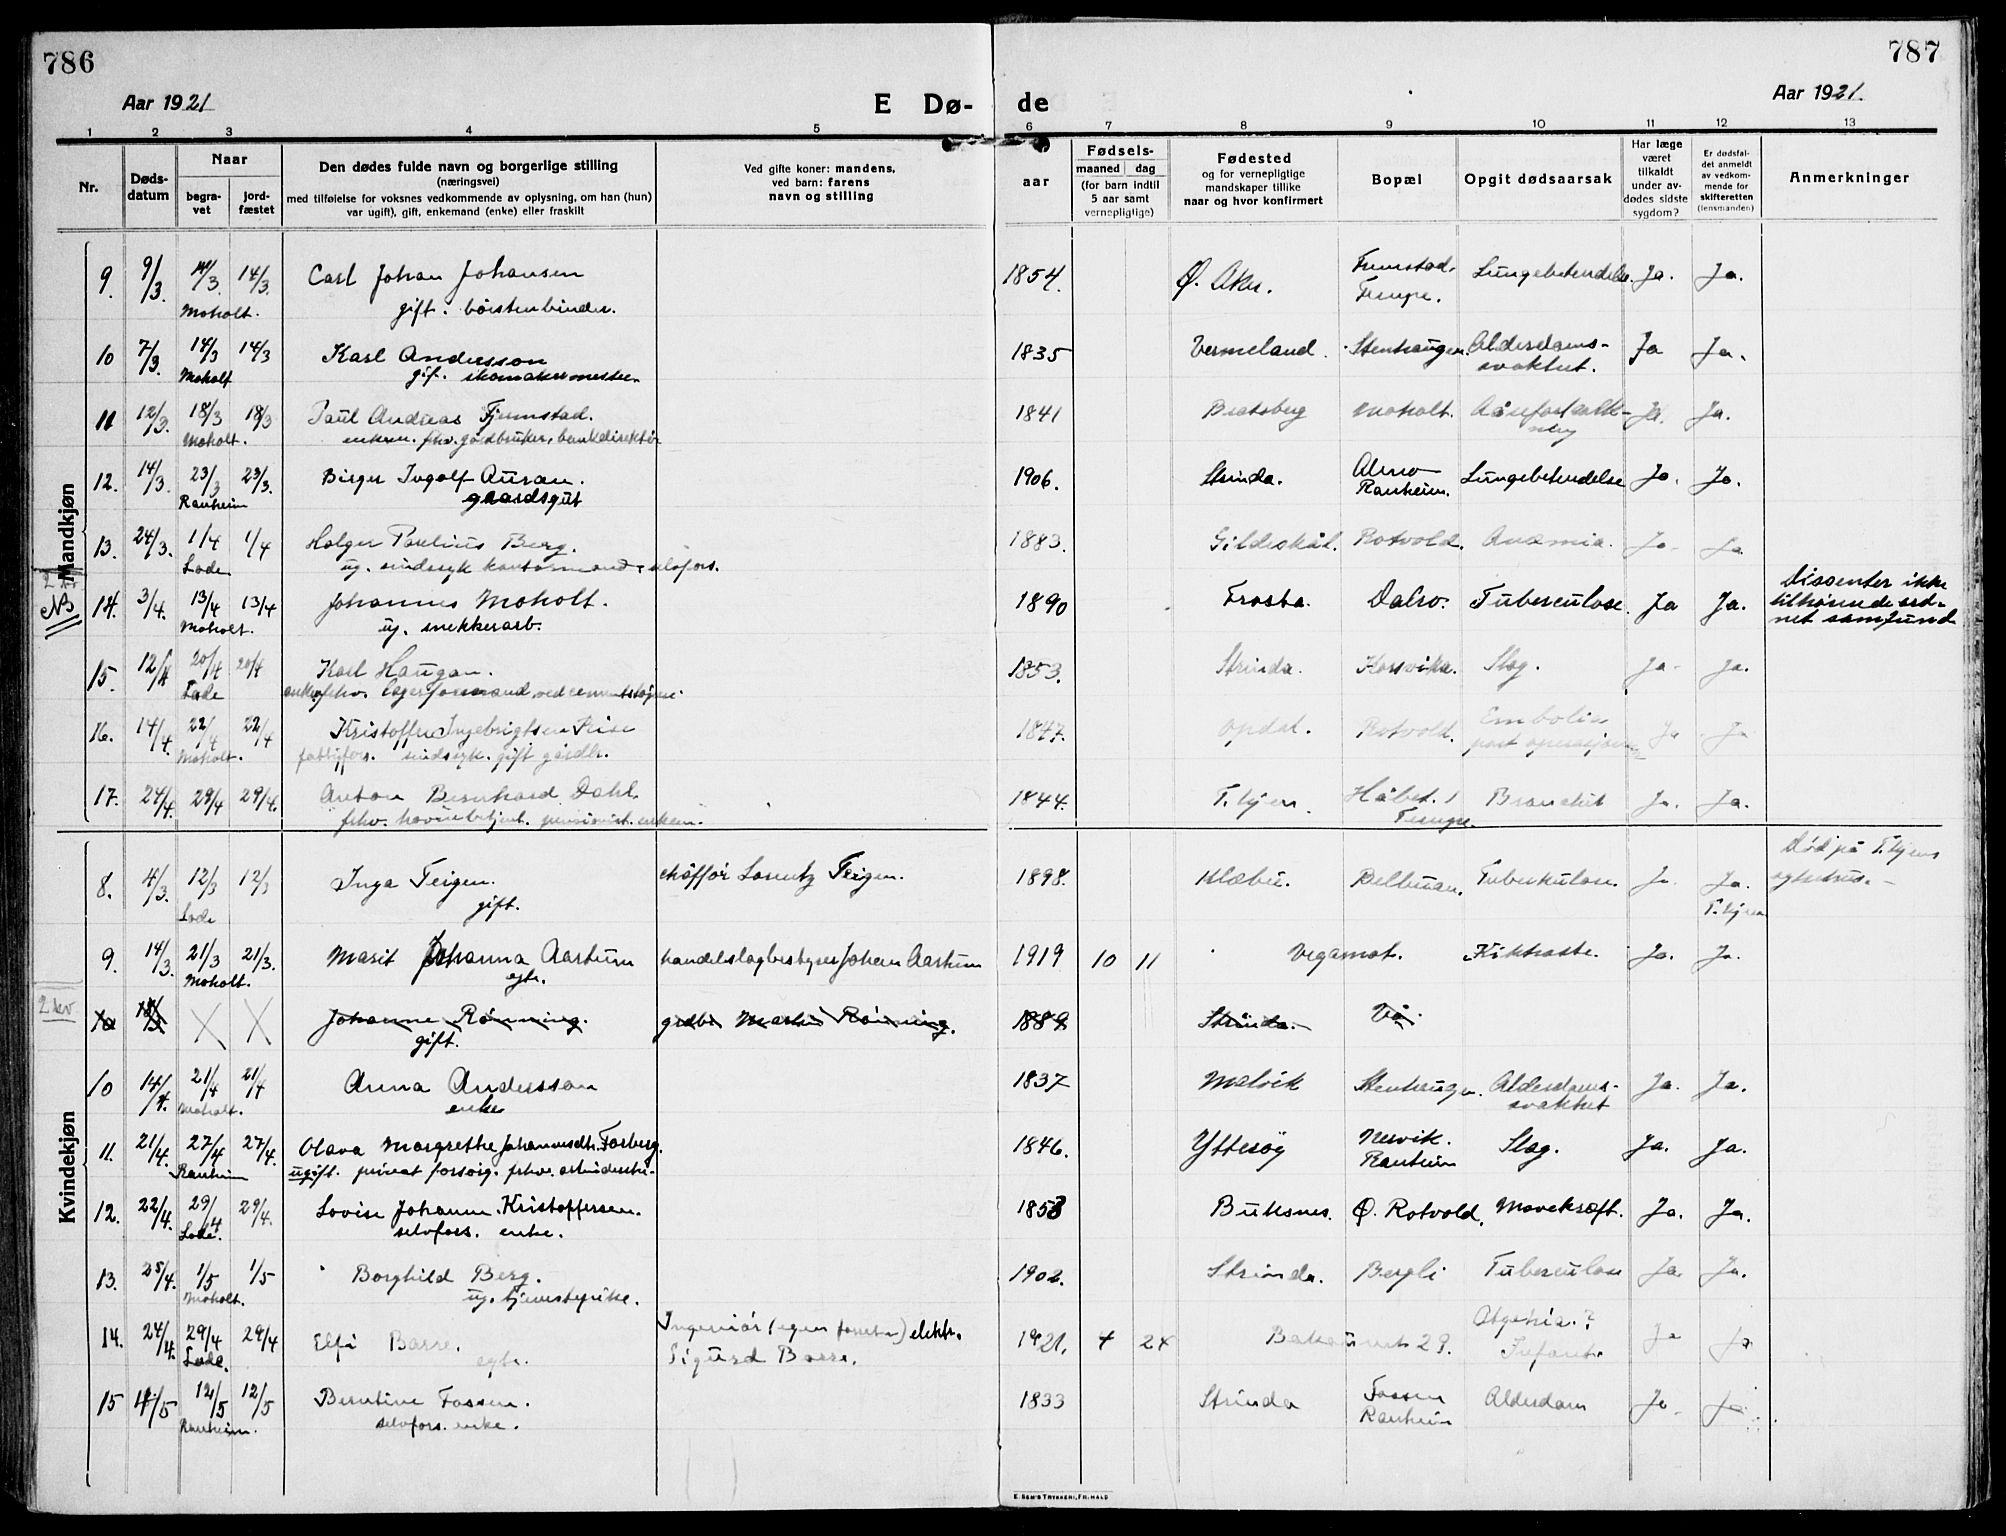 786
787
Aar 1921
E Dø-
de
Aar 1921.
1 2 3 4 5 6 7 8 9 10 11 12 13
Nr.
Døds-
datum
Naar
begra-
vet
jord-
fæstet
Den dødes fulde navn og borgerlige stilling
(næringsvei)
med tilføielse for voksnes vedkommende av oplysning, om han (hun)
var ugift), gift, enkemand (enke) eller fraskilt
Ved gifte koner: mandens,
ved barn: farens
navn og stilling
aar
Fødsels-
maaned dag
(for barn indtil
5 aar samt
vernepligtige)
Fødested
og for vernepligtige
mandskaper tillike
naar og hvor konfirmert
Bopæl
Opgit dødsaarsak
Har læge
været
tilkaldt
under av-
dødes sidste
sygdom?
Er dødsfal-
det anmeldt
av vedkom-
mende for
skifteretten
(lensmanden)
Anmerkninger
Mandkjøn
9. 9/3 14/3. 14/3. Carl Johan Johansen 1854. Ø. Aker. Lungebetendelse. Ja. Ja.
Moholt. gift. børstenbinder. Tempe.
10 7/3. 14/3 14/3 Karl Andersson 1835 Vermeland. Stenhaugen. Alderdoms- Ja Ja.
Moholt gif. skomakermester. svakhet.
11 12/3. 18/3 18/3 Paul Andreas Fjemstad. 1841 Bratsberg Moholt. Ja. Ja.
Moholt. enkem. fhv. gårdbruker, bankdirektør
12. 14/3. 23/3 23/3. Birger Ingolf Auran. 1906. Strinda. Lungebetendelse Ja. Ja.
Ranheim gaardsgut Ranheim.
13. 24/3. 1/4 1/4 Holger Paulius Berg. 1883. Gildeskål. Rotvold. Anæmia. Ja. Ja
Lade ug. sindssyk
2 kv
NB
14. 3/4. 13/4 13/4 Johannes Moholt. 1890 Frosta. Dalro. Tuberculose. Ja Ja. Dissenter ikke
Moholt. ug. snekkerarb. tilhørende ord-
net samfund
15. 12/4 20/4 20/4 Karl Haugan. 1853. Strinda. Korsvika. Slag. Ja. Ja.
Lade fhv. lagerformand ved
16. 14/4. 22/4 22/4 Kristoffer Ingebrigtsen 1847. Opdal. Rotvold. Emboli Ja Ja
Moholt. fattigfors. sindssyk. gift gårdbr. post
17. 24/4. 29/4 29/4. Anton Bernhard Dahl. 1844. T.hjem. Håbet. Brandsår Ja. Ja.
fhv. havnebetjent. pensionist. enkem. Tempe.
Kvindekjøn
8. 4/3. 12/3 12/3 Inga Teigen. chaffør Lorentz Teigen. 1898. Klæbu. Tuberkulose. Ja. Ja. Død på T.hjems
Lade gift. T.hjem sykehus.
9. 14/3. 21/3 21/3. Marit Johanna Aartum handelslagbestyrer Johan Aartum 1919 10 11 Vegamot. Kikhoste. Ja. Ja.
Moholt. egte.
2 kv
10 Johanne Rønning. gårdbr Rønning. 1889 Strinda. Vå.
gift.
10 14/4. 21/4 21/4 Anna Andersson 1837 Malvik Stenhaugen. Alderdoms- Ja. Ja.
Moholt. enke svakhet
11. 21/4. 27/4 27/4. Olava Margrethe Johannesdtr. Forberg. 1846. Ytterøy Nervik. Slag. Ja. Ja.
Ranheim ugift. privat forsørg. fhv. Ranheim
12. 22/4. 29/4 29/4. Lovise Johanne Kristoffersen. 1858 Buksnes. Ø. Rotvold. Mavekræft. Ja. Ja.
Lade. selvfors. enke.
13. 25/4. 1/5 1/5 Borghild Berg. 1902. Strinda. Bergli Tuberculose Ja. Ja.
Moholt. ug. tjenestepike.
14. 24/4. 29/4 29/4 Elfi Barre. Ingeniør (egen ) elektr. 1921. 4 24 Bakaunet 29. Ja Ja
Lade. egte. Sigurd Barre.
15 4/5 12/5 12/5 Berntine Fossen. 1833 Strinda Fossen Alderdom Ja Ja.
Ranheim. selvfors. enke. Ranheim
E. SEM'S TRYKKERI, FR.HALD